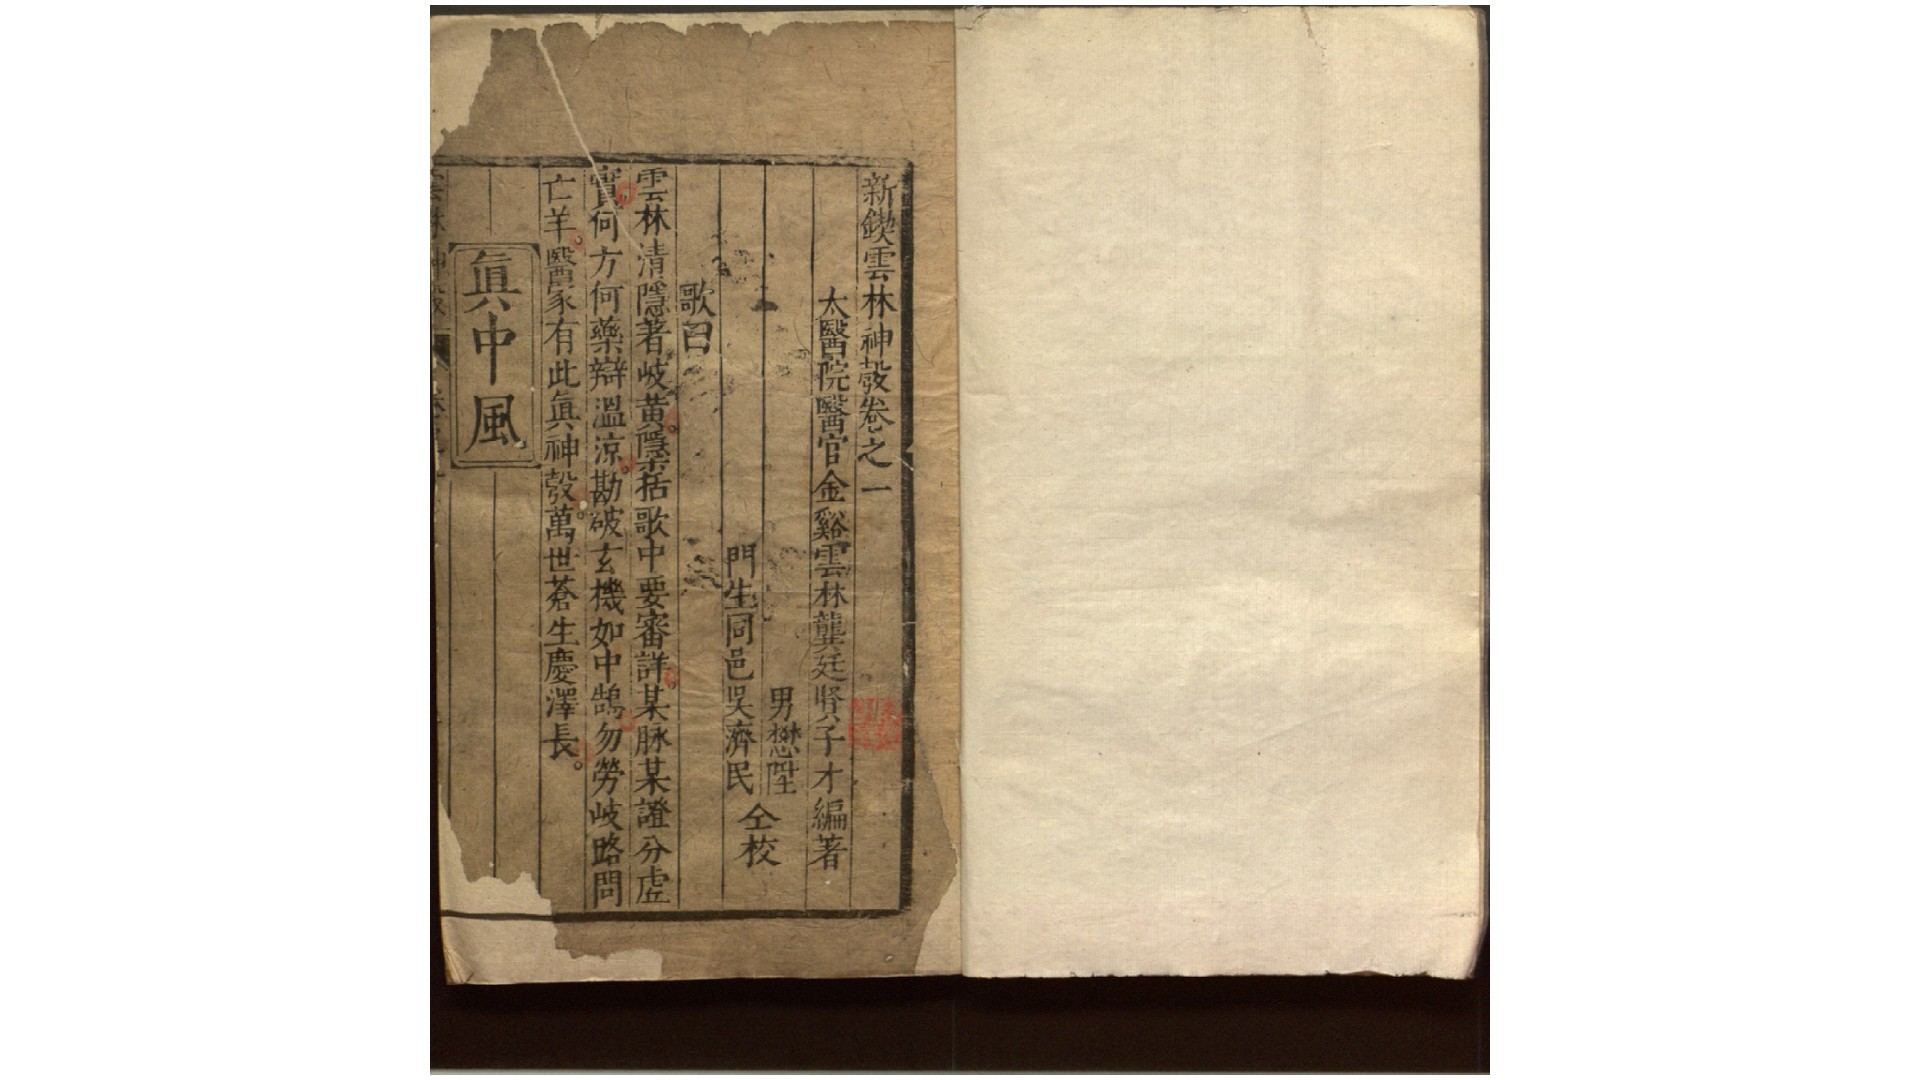 新鍥雲林神彀卷之一
太醫院醫官金谿雲林龔廷賢子才編著
男懋陞
門生同邑吳濟民
仝校
歌曰
雲林清隱著岐黃。隱括歌中要審詳。某脉某證分虛
實。何方何藥辯溫涼。勘破玄機如中鵠。勿勞岐路問
亡羊。醫家有此眞神彀。萬世蒼生慶澤長。
眞中風